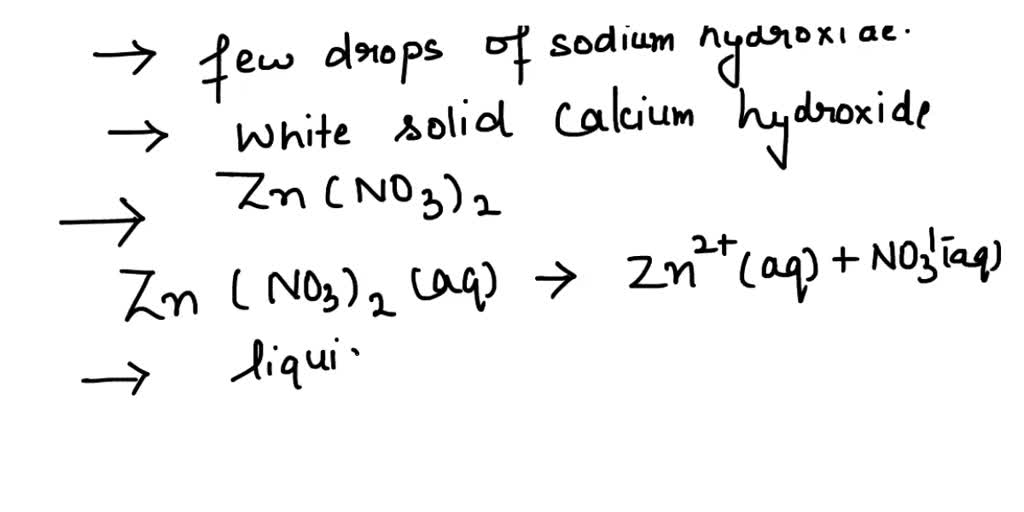 → few drops of sodium hydroxide.
→ White solid Calcium hydroxide
→ Zn(NO3)2
Zn (NO3)2 (aq) → Zn2+ (aq) + NO3 1- (aq)
→ liqui